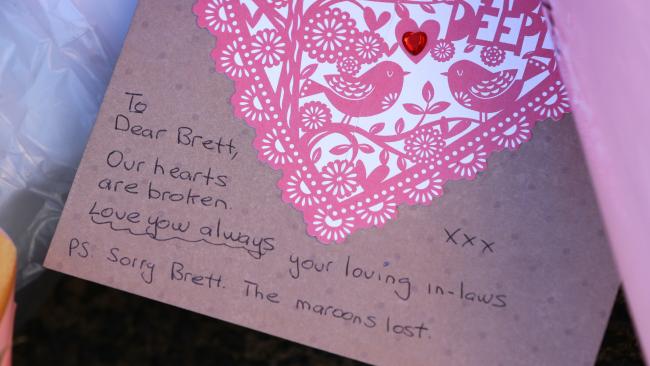 DEEPL
To
Dear Brett,
Our hearts
are broken.
Love you always your loving in-laws
xxx
PS. Sorry Brett. The maroons lost.